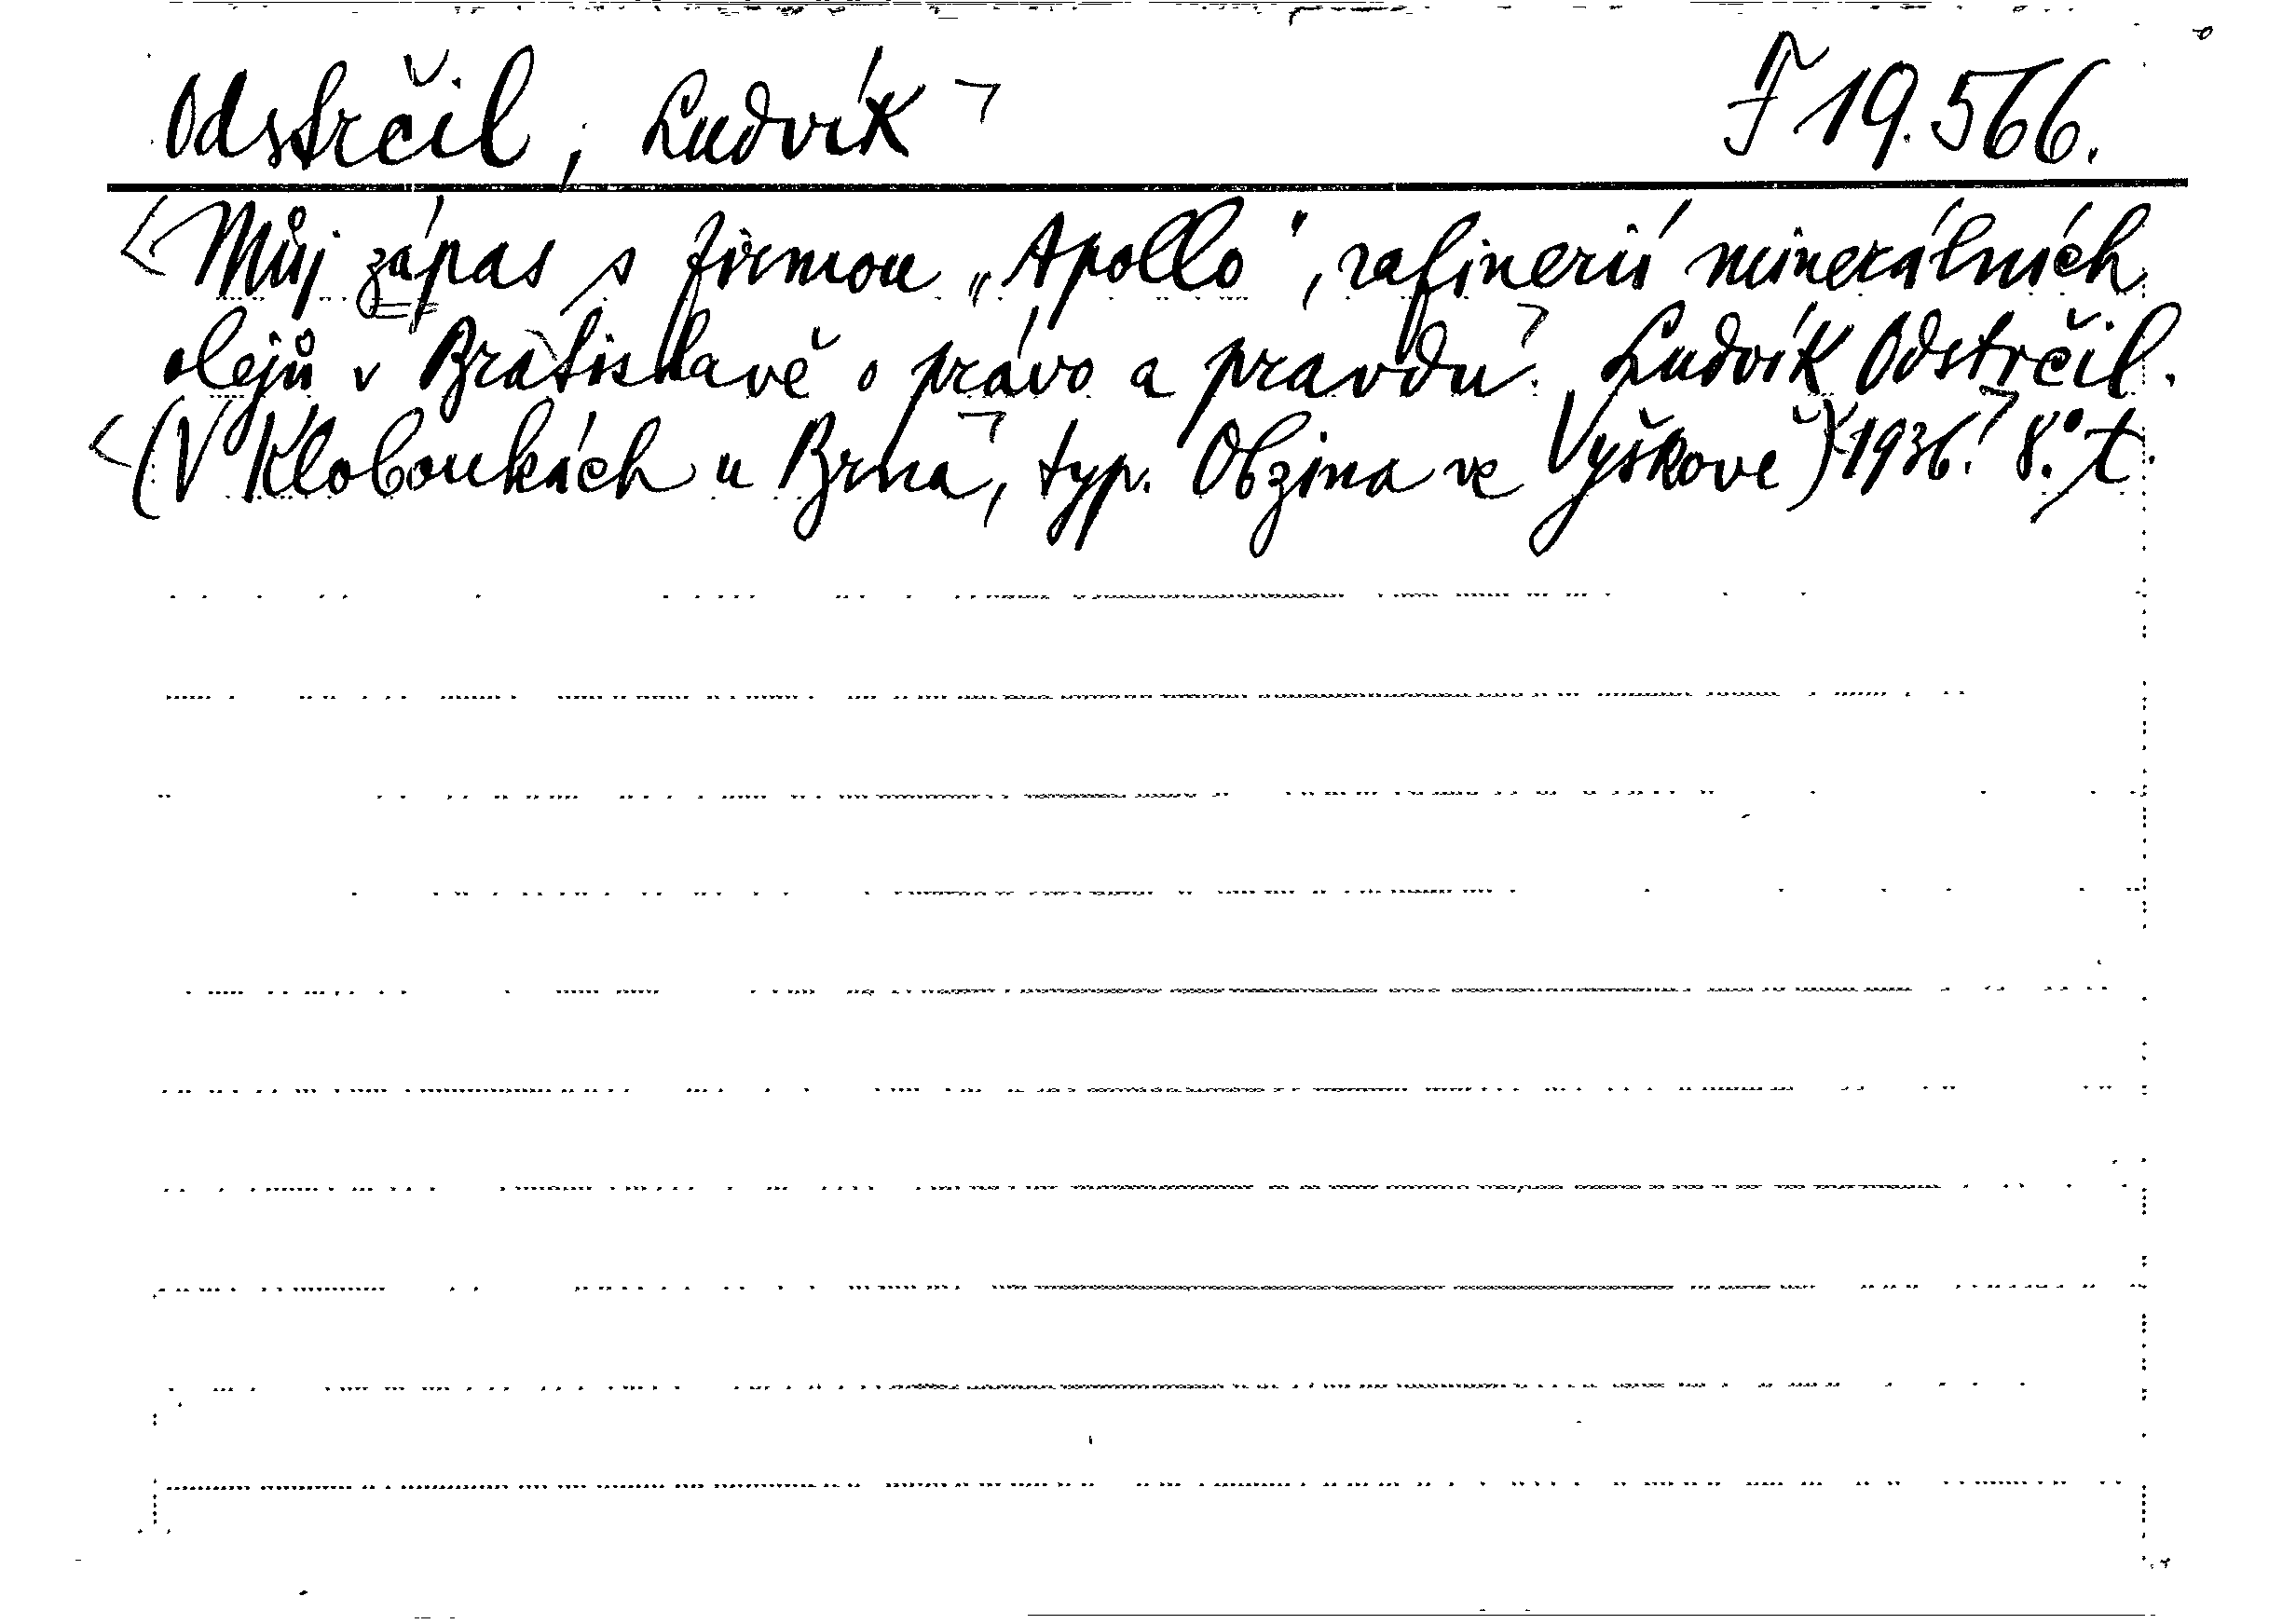 Odstrčil, Ludvík F 19.566.
Můj zápas s firmou „Apollo“, rafinerií minerálních
olejů v Bratislavě o právo a pravdu. Ludvík Odstrčil.
(V Kloboukách u Brna, typ. Obzina ve Vyškově) 1936. 8.° t.